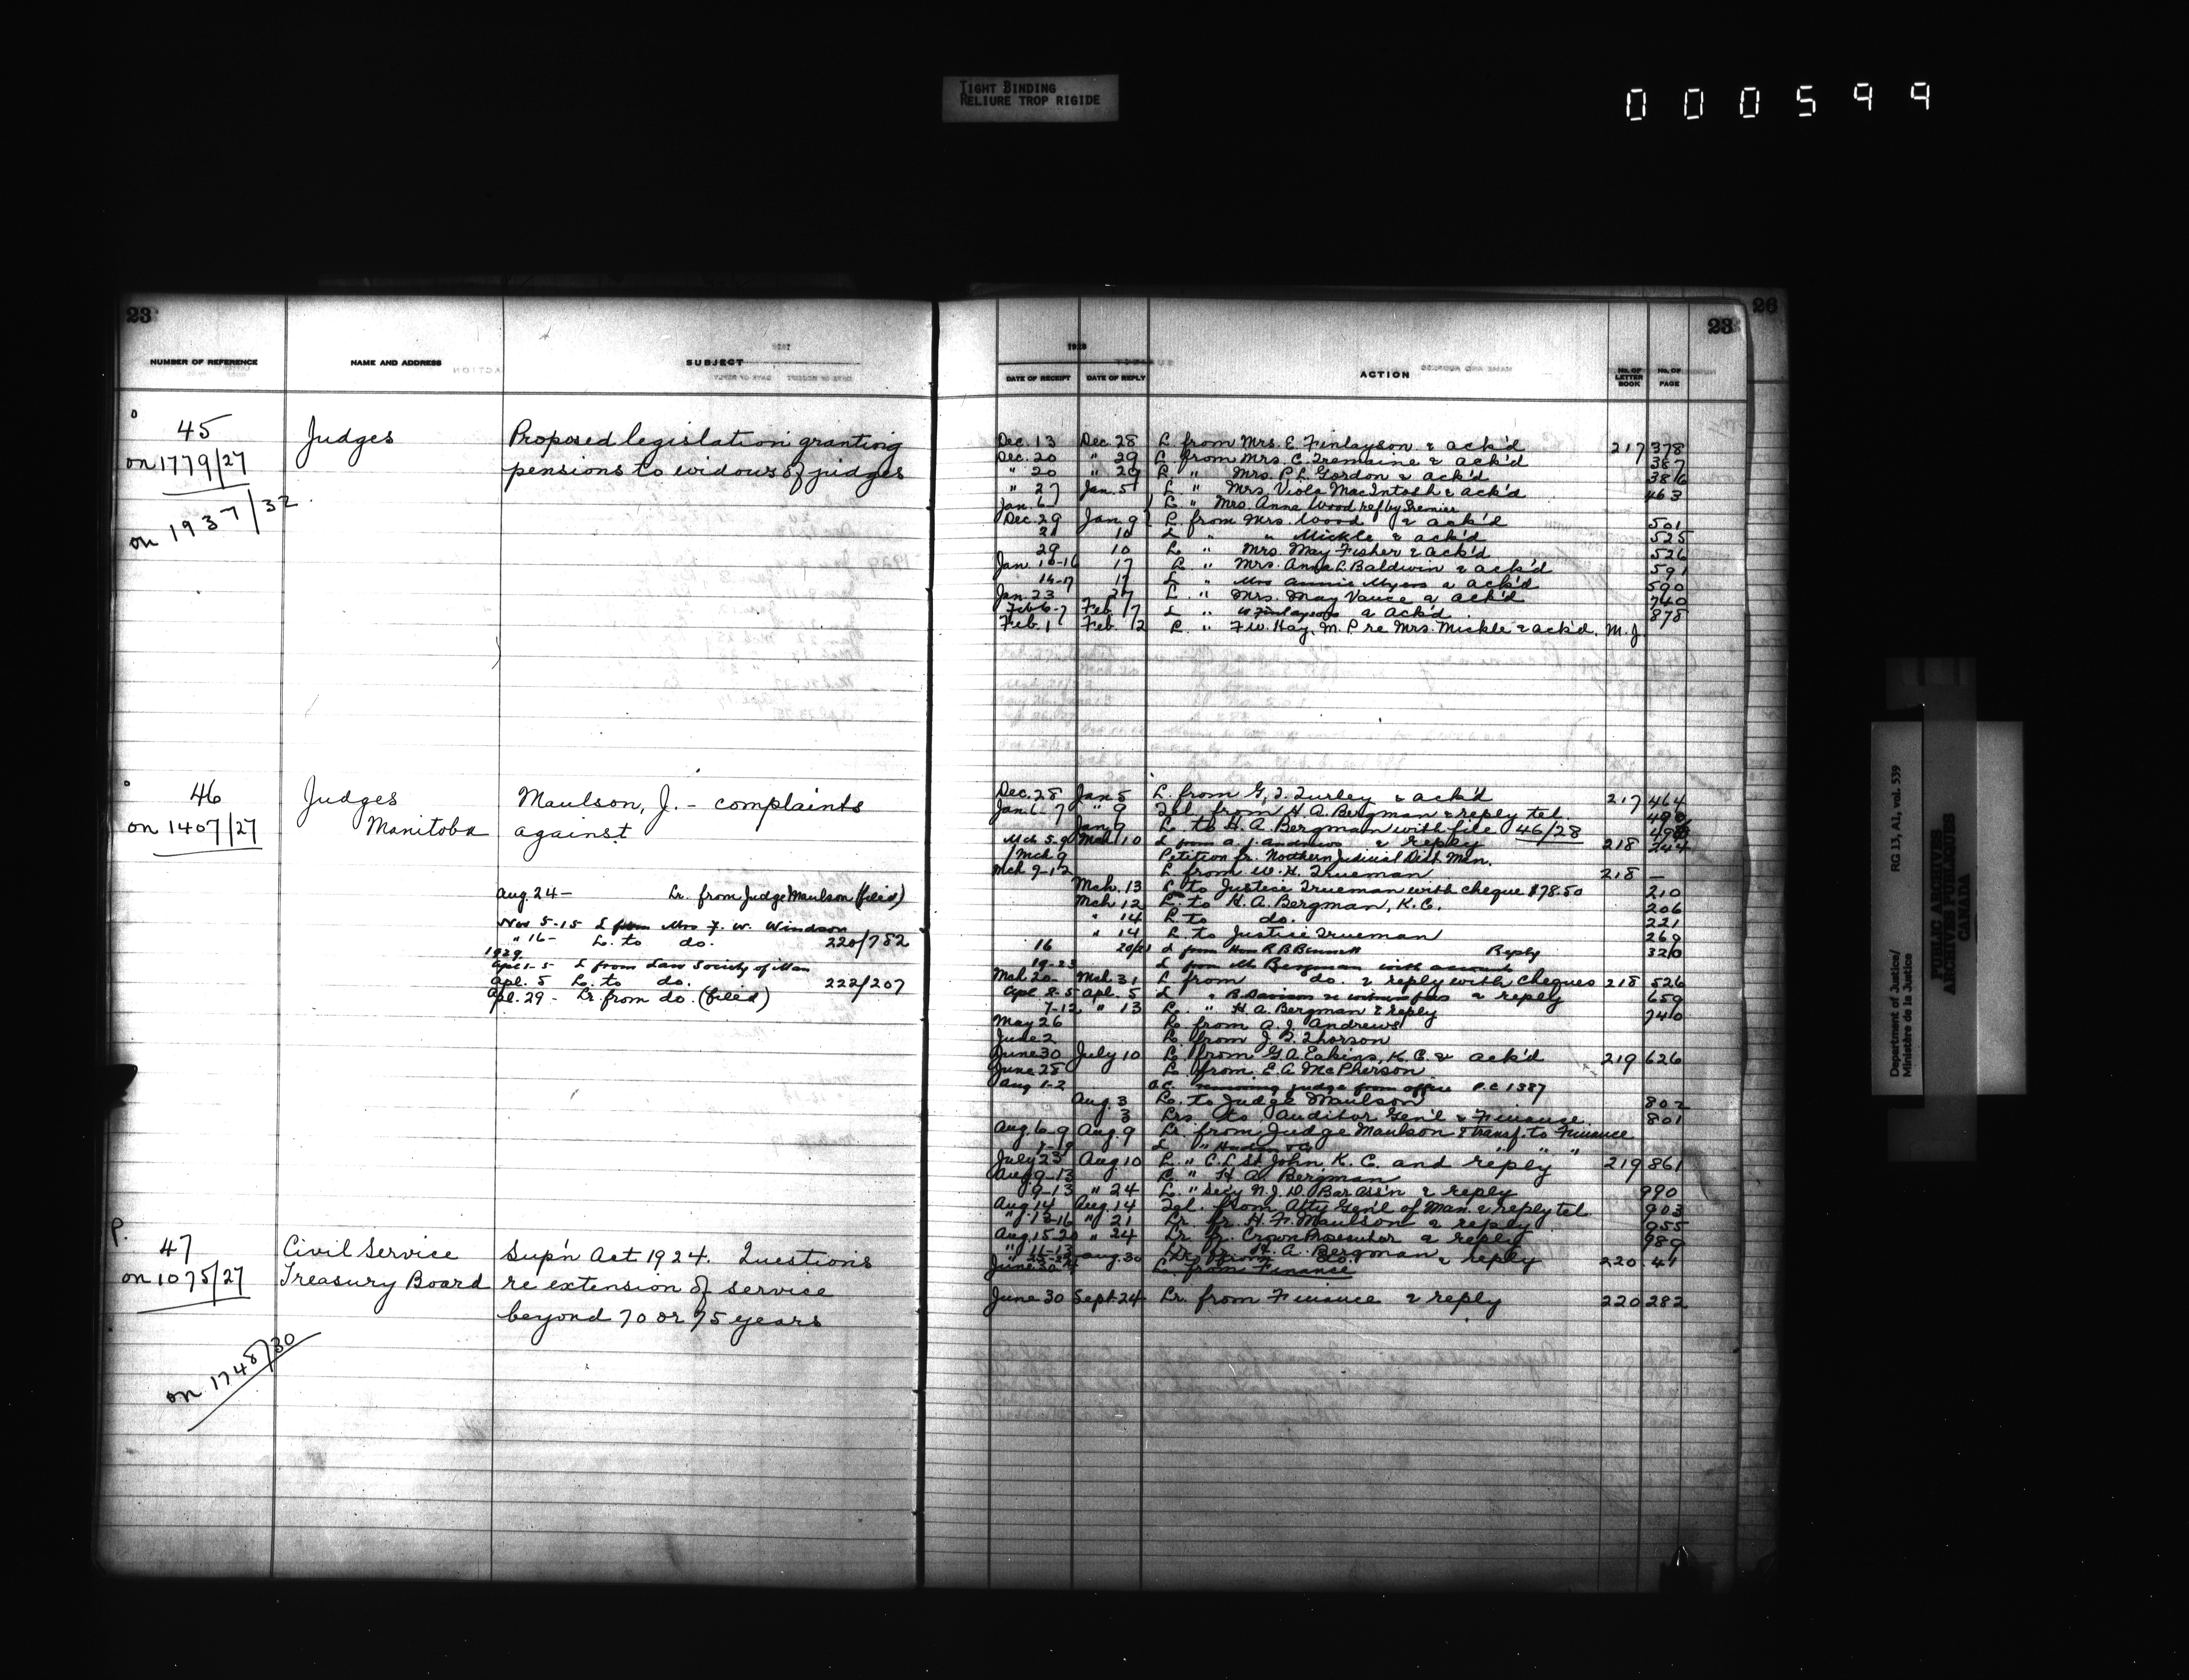 TIGHT BINDING
RELIURE TROP RIGIDE
000599
23
NUMBER OF REFERENCE NAME AND ADDRESS SUBJECT
45 Judges Proposed legislation granting
on 1779/27 pensions to widows of judges
on 1937/32
46 Judges Maulson, J. - complaints
on 1407/27 Manitoba against
Aug. 24 - Lr. from Judge Maulson (filed)
Nov 5-15 L from Mrs F. W. Windson
" 16 - L. to do. 220/782
1929
Apl 1-5 L from Law Society of Man
Apl. 5 L. to do. 222/207
Apl. 29 - Lr. from do. (filed)
P.
47 Civil Service Sup'n Act 1924. Questions
on 1075/27 Treasury Board re extension of service
beyond 70 or 75 years
on 1748/30
26
23
1928
DATE OF RECEIPT DATE OF REPLY ACTION No. OF LETTER BOOK No. OF PAGE
Dec. 13 Dec. 28 L. from Mrs. E. Finlayson & ack'd 217 378
Dec. 20 " 29 L. from Mrs. C. Tremaine & ack'd 387
" 20 " 29 L. " Mrs. P. L. Gordon & ack'd 386
" 27 Jan. 5 L. " Mrs. Viola MacIntosh & ack'd 463
Jan. 6 L. " Mrs. Anna Wood ref by Premier
Dec. 29 Jan. 9 L. from Mrs. Wood & ack'd 501
21 10 L " " Mickle & ack'd 525
29 10 L. " Mrs. May Fisher & ack'd 526
Jan. 10-16 17 L. " Mrs. Anna L. Baldwin & ack'd 591
14-17 17 L " Mrs Annie Myers & ack'd 590
Jan. 23 27 L. " Mrs. May Vance & ack'd 740
Feb 6-7 Feb 17 L " Finlayson & Ack'd 878
Feb. 1 Feb. 12 L. " F. W. Hay, M.P. re Mrs. Mickle & ack'd. M.J.
Dec. 28 Jan 5 L. from G. T. Turley & ack'd 217 464
Jan. 6-7 " 9 Tel. from H. A. Bergman & reply tel 490
Jan. 9 L. to H. A. Bergman with file 46/28
Mch 5-9 Mch 10 L from A. J. Andrews & reply 218 244
Mch 9 Petition fr. Northern Judicial Dist. Man.
Mch 9-12 L from W. H. Trueman 218 —
Mch. 13 L to Justice Trueman with cheque $78.50 210
Mch 12 L. to H. A. Bergman, K.C. 206
" 14 L to do. 221
" 14 L to Justice Trueman 269
16 20/21 L from Hon R B Bennett Reply 320
19-23 L from Mr Bergman with account
Mch 20 Mch 31 L from do. & reply with cheques 218 526
Apl 2-5 Apl. 5 L " B Davison re witness fees & reply 659
7-12 " 13 L. " H. A. Bergman & reply 740
May 26 L. from A. J. Andrews
June 2 L. from J. T. Thorson
June 30 July 10 L. from G. A. Eakins, K.C. & ack'd 219 626
June 28 L. from E. A. McPherson
Aug 1-2 O.C. removing judge from office P.C. 1387
Aug. 3 L. to Judge Maulson 802
3 Lrs to Auditor Gen'l & Finance 801
Aug. 6-9 Aug. 9 Lr. from Judge Maulson & transf. to Finance
July 23 Aug 10 L. " C. L. St. John, K.C. and reply 219 861
Aug 9-13 L. " H. A. Bergman
9-13 " 24 L. " Sec'y N. J. D. Bar Ass'n & reply 990
Aug 14 Aug. 14 Tel. from Atty Gen'l of Man. & reply tel 903
" 13-16 " 21 Lr. fr. H. F. Maulson & reply 955
Aug. 15-20 " 24 Lr. fr. Crown Prosecutor & reply 989
" 11-13 Lr. fr. H. A. Bergman
Aug. 30 Lr. from do. & reply 220 41
L. from Finance
June 30 Sept. 24 Lr. from Finance & reply 220 282
Department of Justice/ RG 13, A1, vol. 539
Ministère de la Justice
PUBLIC ARCHIVES
ARCHIVES PUBLIQUES
CANADA